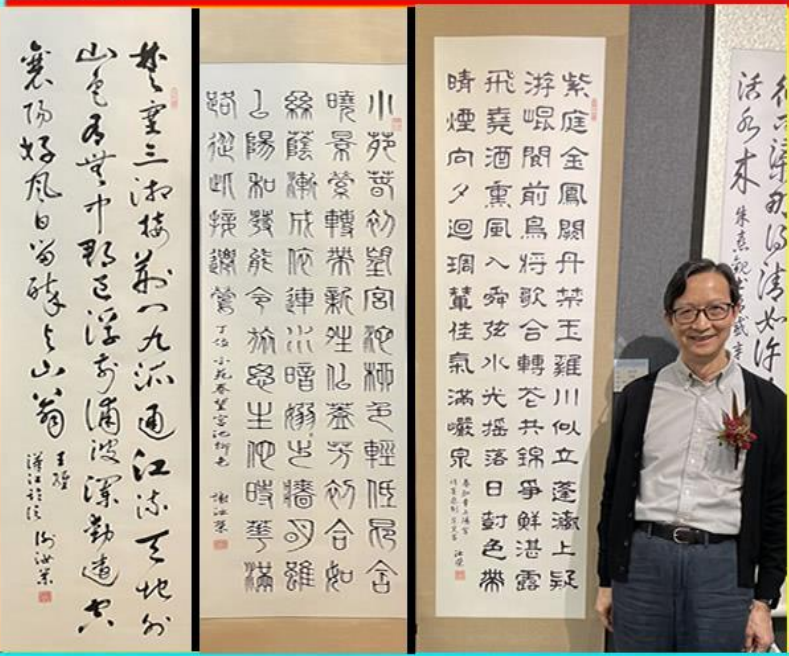 楚塞三湘接荊門九派通江流天地外
山色有無中郡邑浮前浦波瀾動遠空
襄陽好風日留醉與山翁
王維
漢江臨泛 謝汝榮
小苑春初望宮池柳色輕低昂含
曉景縈轉帶新姓似蓋芳初合如
絲蔭漸成依連水暗嫋出牆明雖
以陽和發能令旅思生他時華滿
路從此接遷鶯 丁位 小苑春望宮池柳色 謝汝榮
紫庭金鳳闕丹禁玉雞川似立蓬瀛上疑
游崐閬前鳥將歌合轉花共錦爭鮮湛露
飛堯酒熏風入舜弦水光搖落日樹色帶
晴煙向夕迴琱輦佳氣滿巖泉
奉和幸上陽宮
侍宴應制 汝榮
渠那得清如許
活水來 朱熹觀書有感